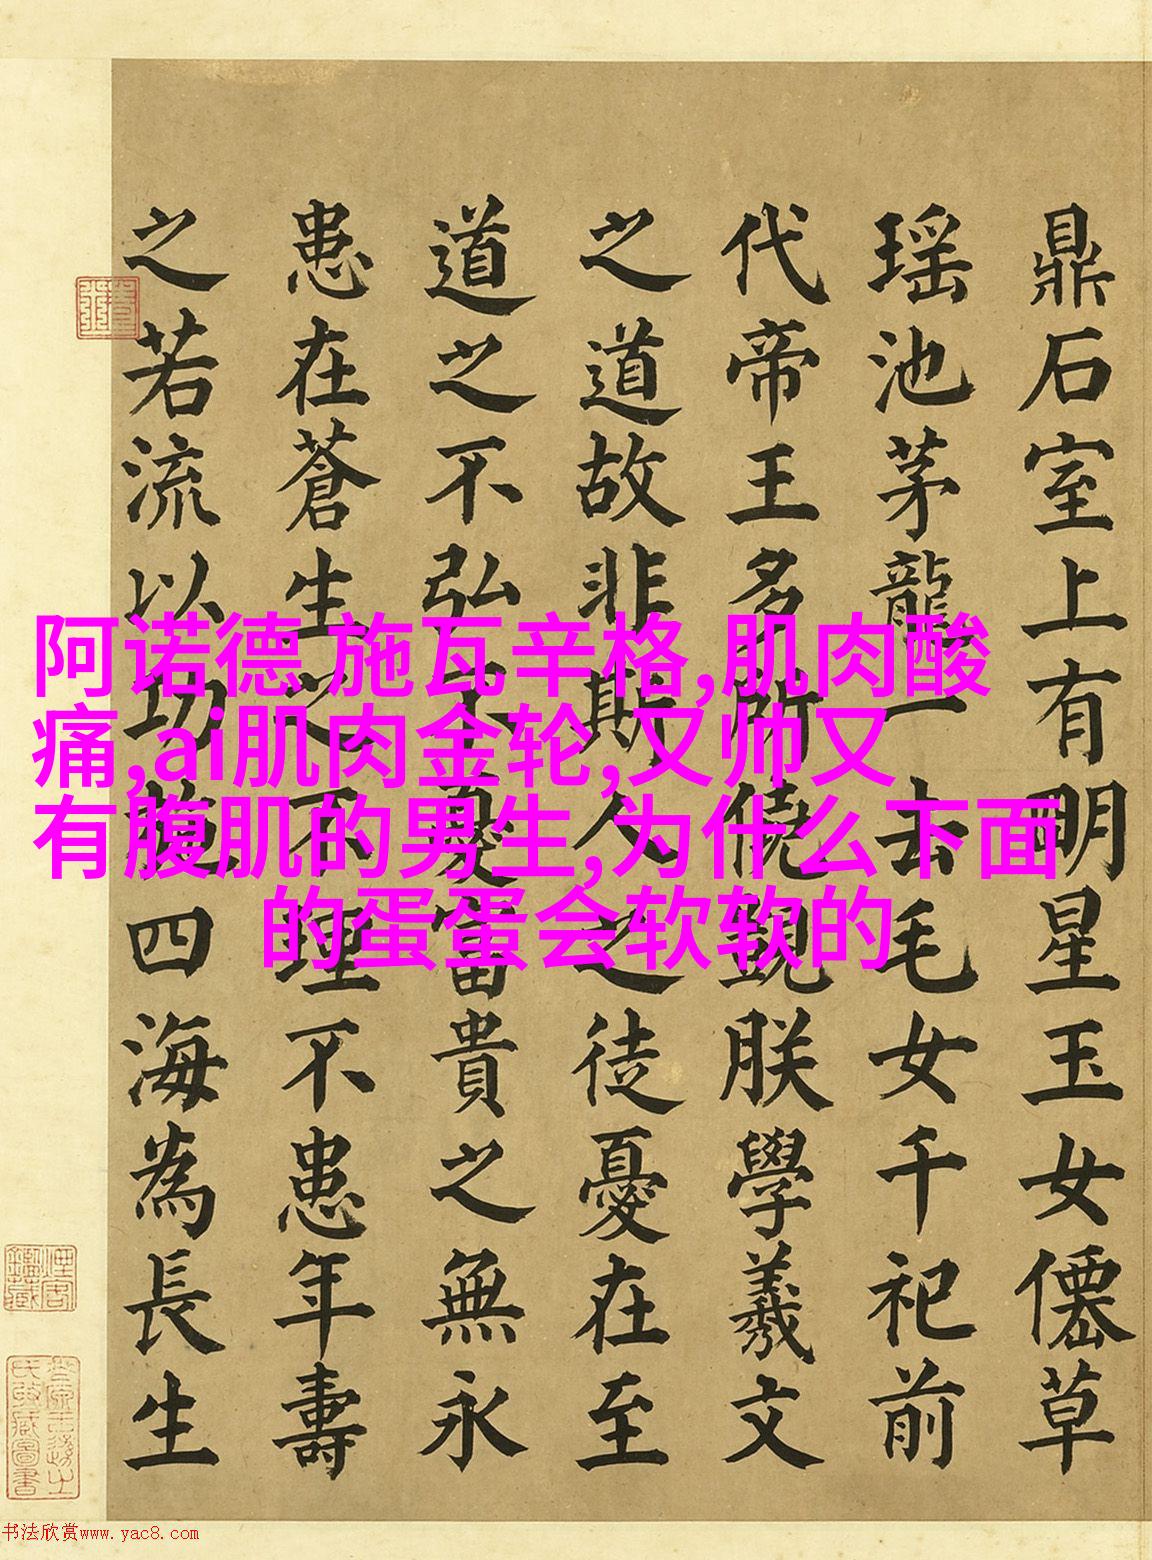 鼎石室上有明星玉女僊草
瑶池茅龍一去毛女千祀前
代帝王多所僥覬朕學羲文
之道故非斯人之徒憂在至
道之不弘不憂富貴之無永
患在蒼生之不理不患年壽
之若流以功格四海為長生
阿诺德 施瓦辛格,肌肉酸
痛,ai肌肉金轮,又帅又
有腹肌的男生,为什么下面
的蛋蛋会软软的
书法欣赏www.yac8.com